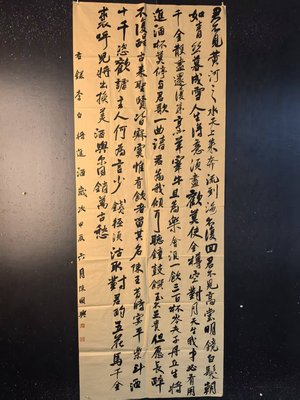 君不見黃河之水天上來奔流到海不復回君不見高堂明鏡白髮朝
如青絲暮成雪人生得意須盡歡莫使金樽空對月天生我才必有用
千金散盡還復來烹羊宰牛且為樂會須一飲三百杯岑夫子丹丘生將
進酒杯莫停與君歌一曲請君為我傾耳聽鐘鼓饌玉不足貴但願長醉
不復醒古來聖賢皆寂寞惟有飲者留其名陳王昔時宴平樂斗酒
十千恣歡謔主人何為言少錢徑須沽取對君酌五花馬千金
裘呼兒將出換美酒與爾同銷萬古愁
右錄李白將進酒歲次甲辰六月陳國興